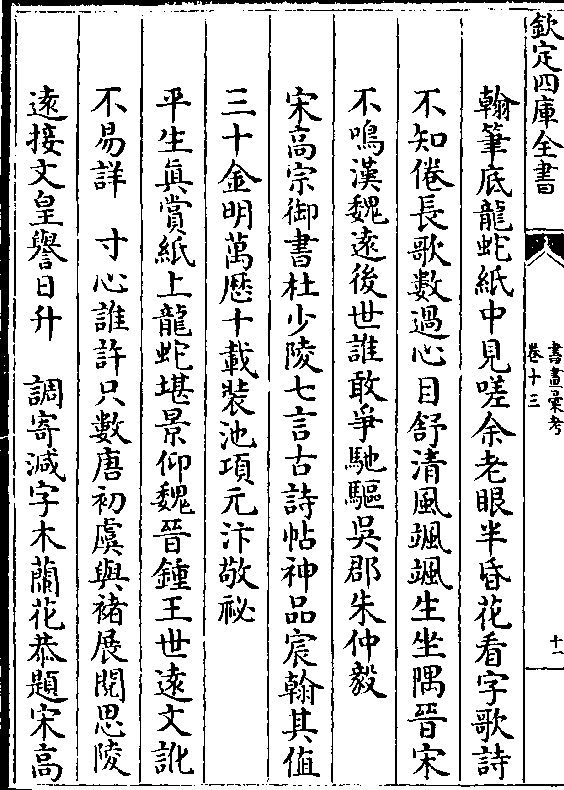 欽定四庫全書
書畫彙考
卷十三
十一
翰筆底龍蛇紙中見嗟余老眼半昏花看字歌詩
不知倦長歌數過心目舒清風颯颯生坐隅晉宋
不鳴漢魏遠後世誰敢爭馳驅吳郡朱仲毅
宋高宗御書杜少陵七言古詩帖神品宸翰其值
三十金明萬歷十載裝池項元汴敬祕
平生真賞紙上龍蛇堪景仰魏晉鍾王世遠文訛
不易詳　寸心誰許只數唐初虞與褚展閱思陵
遠接文皇譽日升　調寄減字木蘭花恭題宋高